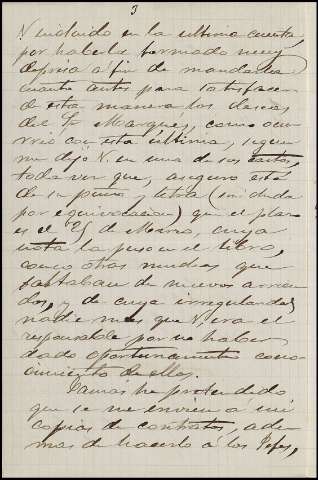 3
V. incluido en la ultima cuenta,
por haberla formado muy
deprisa á fin de mandarla
cuanto antes para satisfacer
de esta manera los deseos
del Sr Marqués, como ocu-
rrió con esta última, segun
me dijo V. en una de sus cartas,
toda vez que, aseguro está
de su puño y letra (sin duda
por equivocacion) que el plazo
es el 25 de Marzo, cuya
nota la puso en el libro,
como otras muchas que
faltaban de nuevos arrien-
dos, y de cuya irregularidad
nadie mas que V. era el
responsable por no haber
dado oportunamente cono-
cimiento de ellos.
Jamás he pretendido
que se me envien á mi
copias de contratos, ade-
mas de hacerlo á los Jefes,